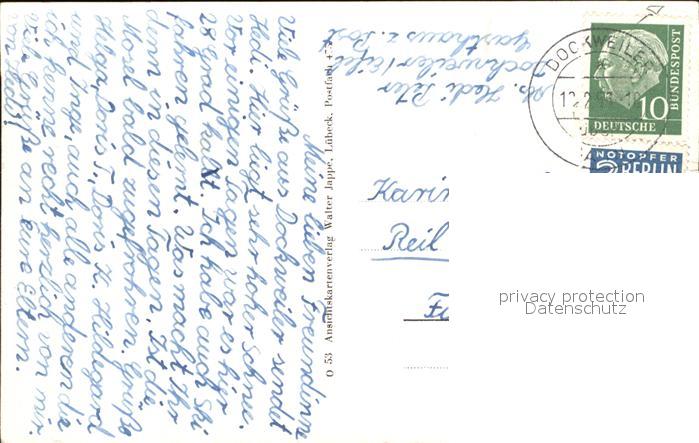 Meine lieben Freundinnen
Viele Grüße aus Dockweiler sendet
Hedi. Hier liegt sehr hoher Schnee.
Vor einigen Tagen war es hier
28 Grad kalt. Ich habe auch Ski
fahren gelernt. Was macht Ihr
denn in diesen Tagen. Ist die
Mosel bald zugefroren. Grüße
Helga, Doris T., Doris K. Hildegard
und Inge, auch alle anderen die
ich kenne recht herzlich von mir.
Viele Grüße an eure Eltern.
von Hedi
O 53 Ansichtskartenverlag Walter Jappe, Lübeck, Postfach
Abs. Hedi Peter
Dockweiler/Eifel
Gasthaus z. Post
DOCKWEILER
10
DEUTSCHE
BUNDESPOST
NOTOPFER
2 BERLIN
Karin
Reil
privacy protection
Datenschutz